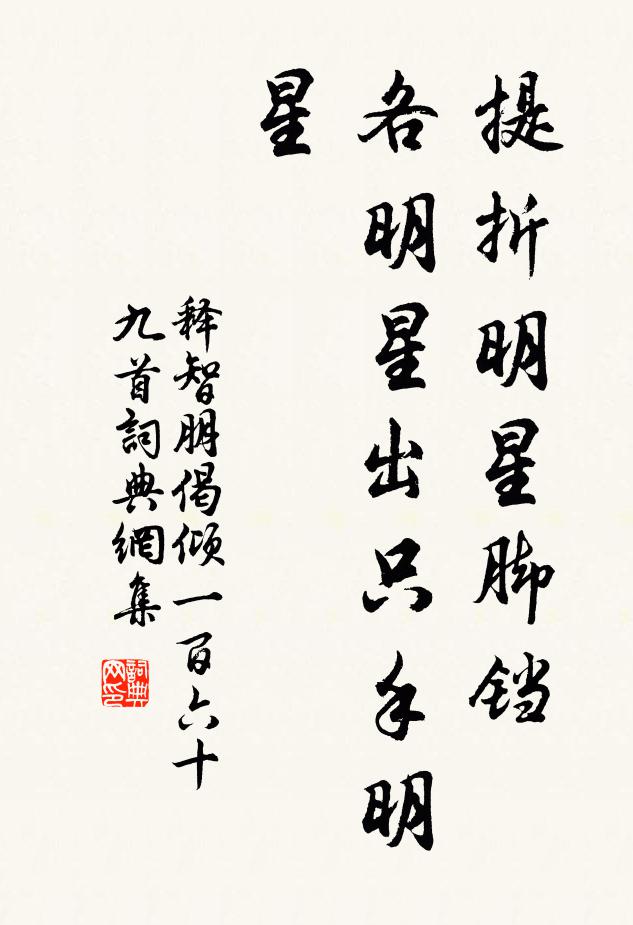 提折明星脚铛
各明星出只手明
星
释智朋偈倾一百六十
九首詞典網集
詞典网印